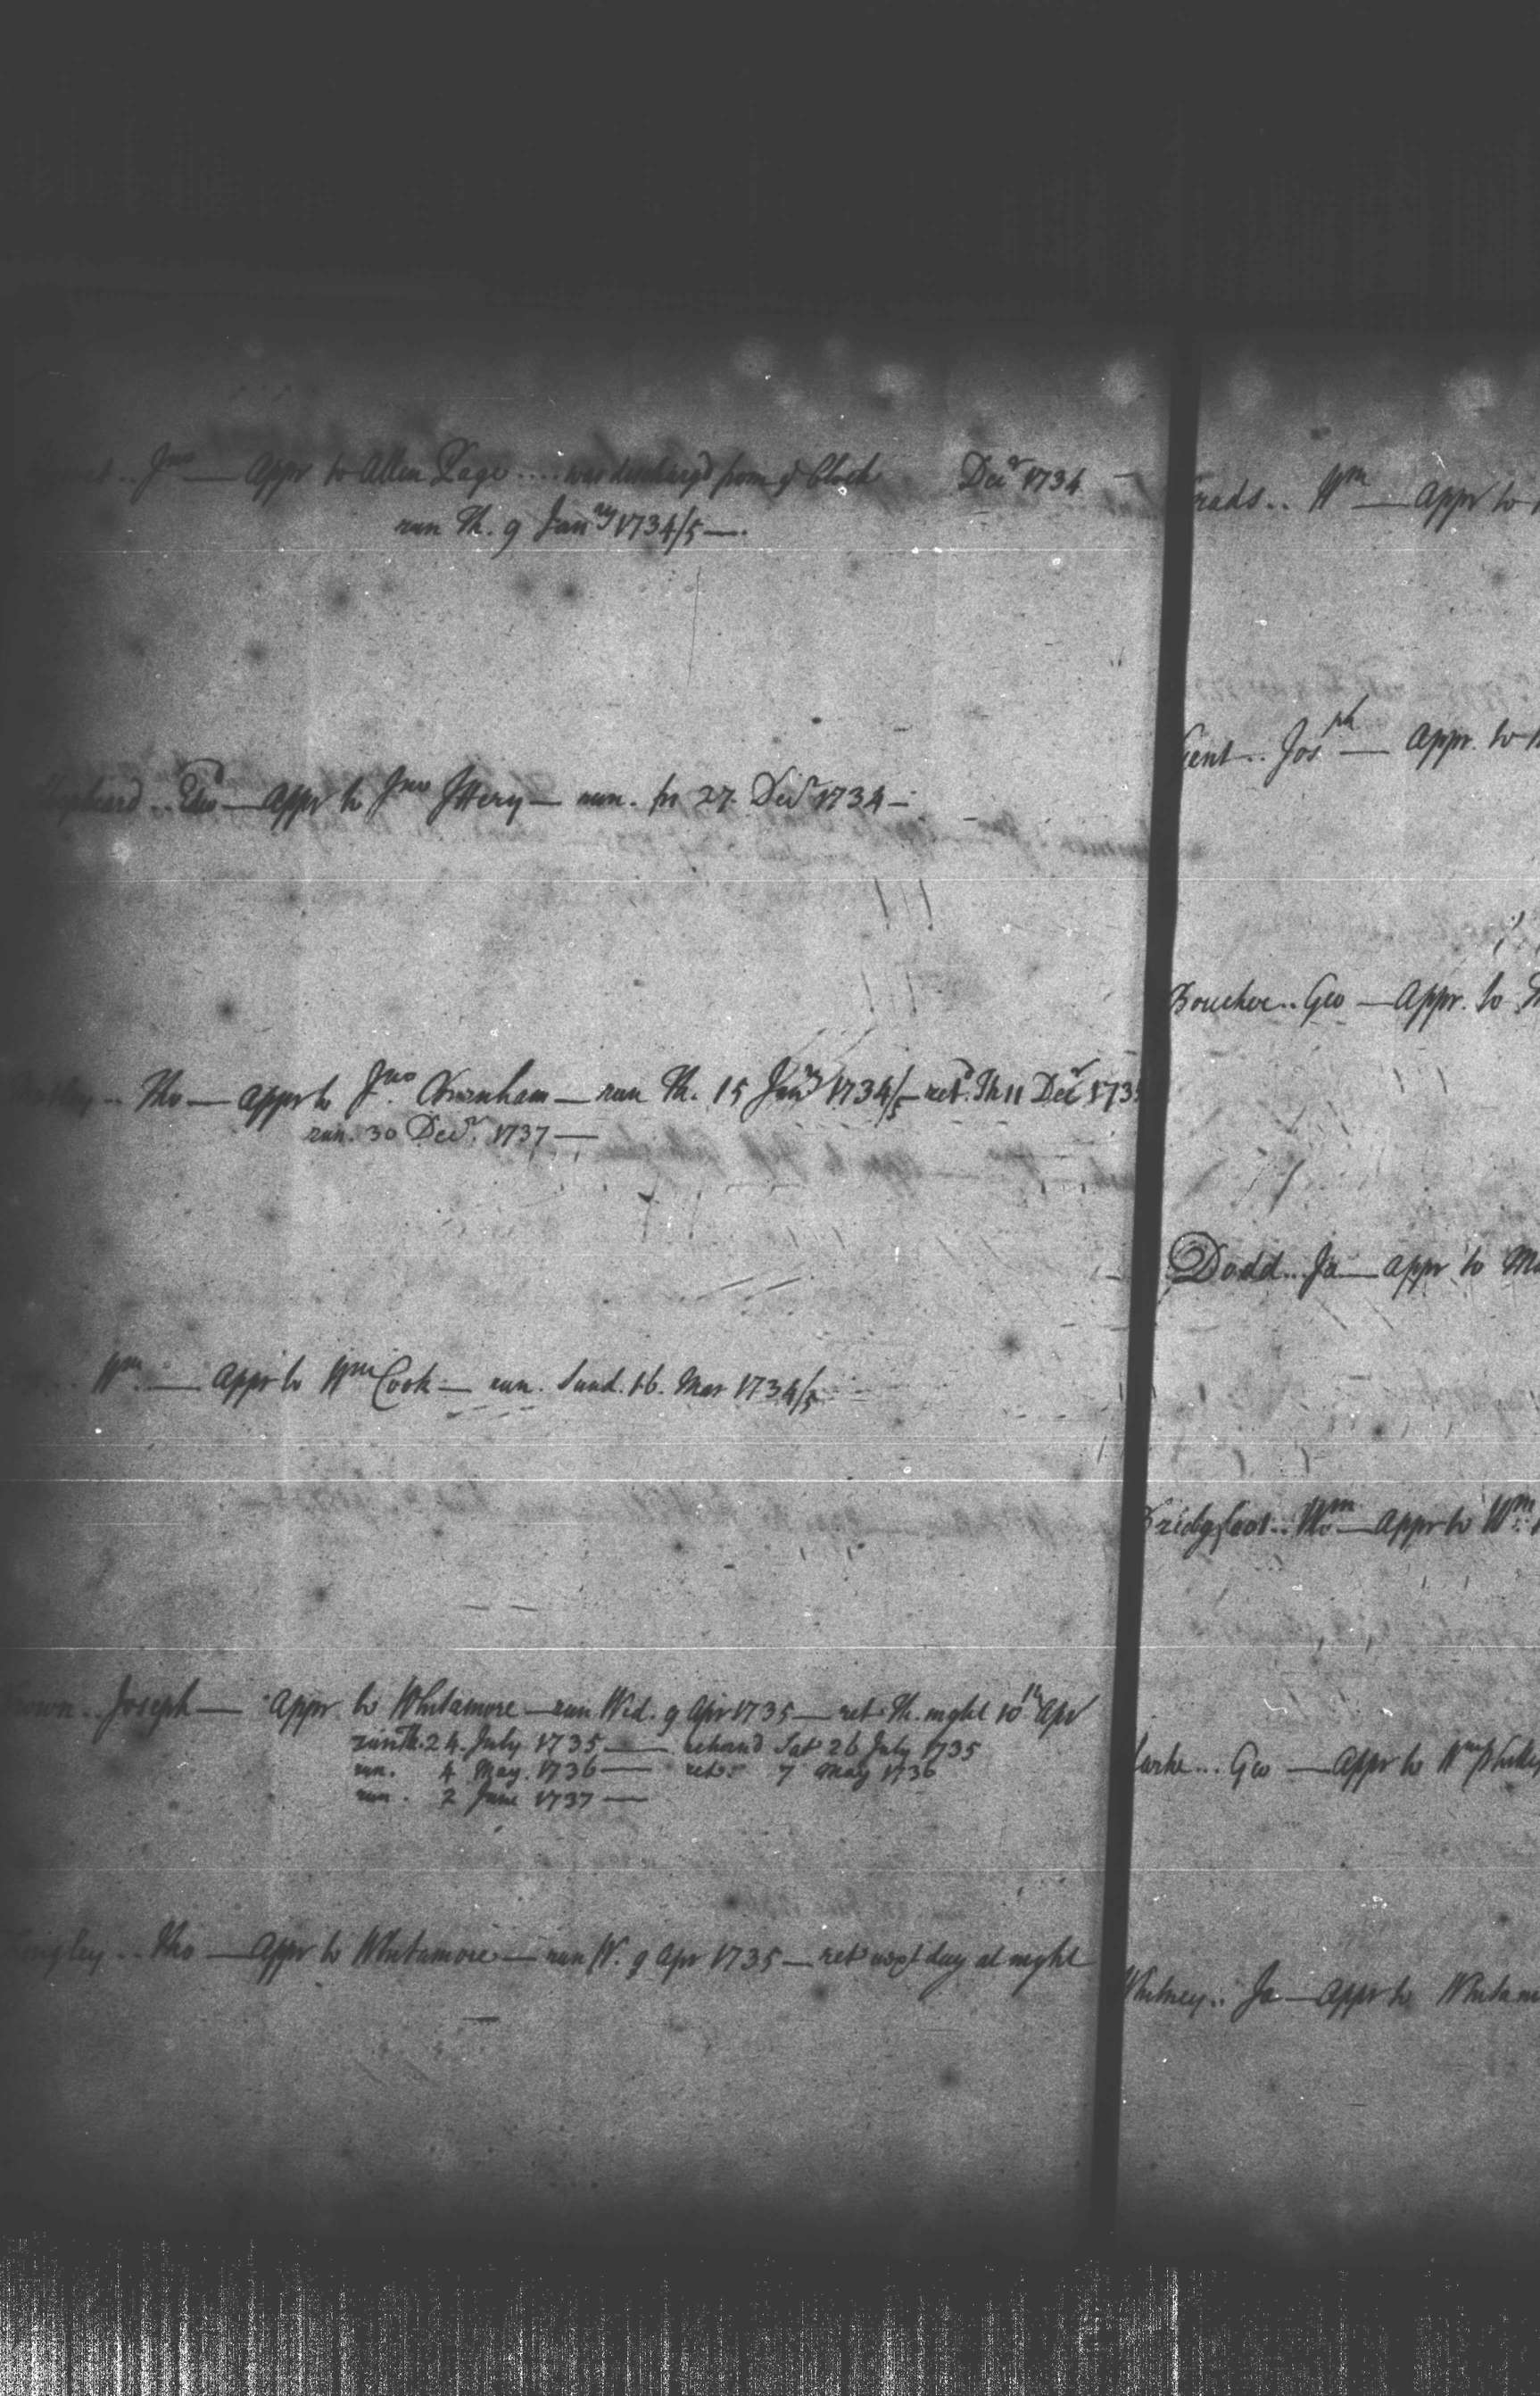 Jno — Appr to Allen Page .... was discharg'd from ye Clock Decr 1734 —
run Th. 9 Janry 1734/5 —.
Edwd — Appr to Jno Jffery — run. fri 27. Decr 1734 —
.. Tho — Appr to Jno. Burnham — run Th. 15 Janry 1734/5 — retd. Th 11 Decr 173
run. 30 Decr. 1737 —
Wm. — Appr to Wm Cook — run. Sund. 16. Mar 1734/5
own.. Joseph — Appr. to Whitamore — run Wed. 9 Apr 1735 — ret. Th. night 10th Apr
run Th. 24. July 1735 — returnd Sat 26 July 1735
run. 4 May. 1736 — ret. 7 May 1736
run. 2 June 1737 —
ingley.. Tho — Appr to Whitamore — run W. 9 Apr 1735 — ret next day at night
rads.. Wm — Appr to
ent.. Josph — Appr. to
Boucher.. Geo — Appr. to
Dodd.. Ja — Appr to Ma
ridgfoot.. — Appr to Wm.
larke... Geo — Appr to Wm
Whitney.. Ja — Appr to Whitam